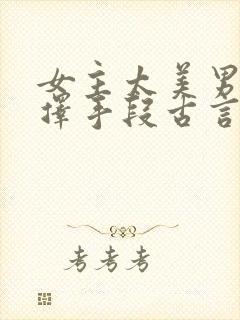 女主太美男
择手段古言
考考考